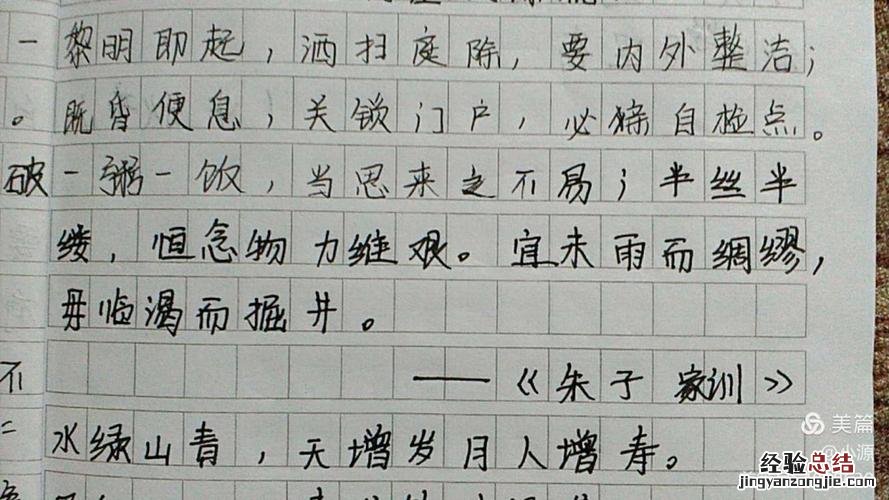 一黎明即起，洒扫庭除，要内外整洁；
。既昏便息，关锁门户，必亲自检点。
破一粥一饭，当思来之不易；半丝半
缕，恒念物力维艰。宜未雨而绸缪，
毋临渴而掘井。
不——《朱子家训》
二水绿山青，天增岁月人增寿。
美篇
@小源
经验总结
jingyanzongjie.com